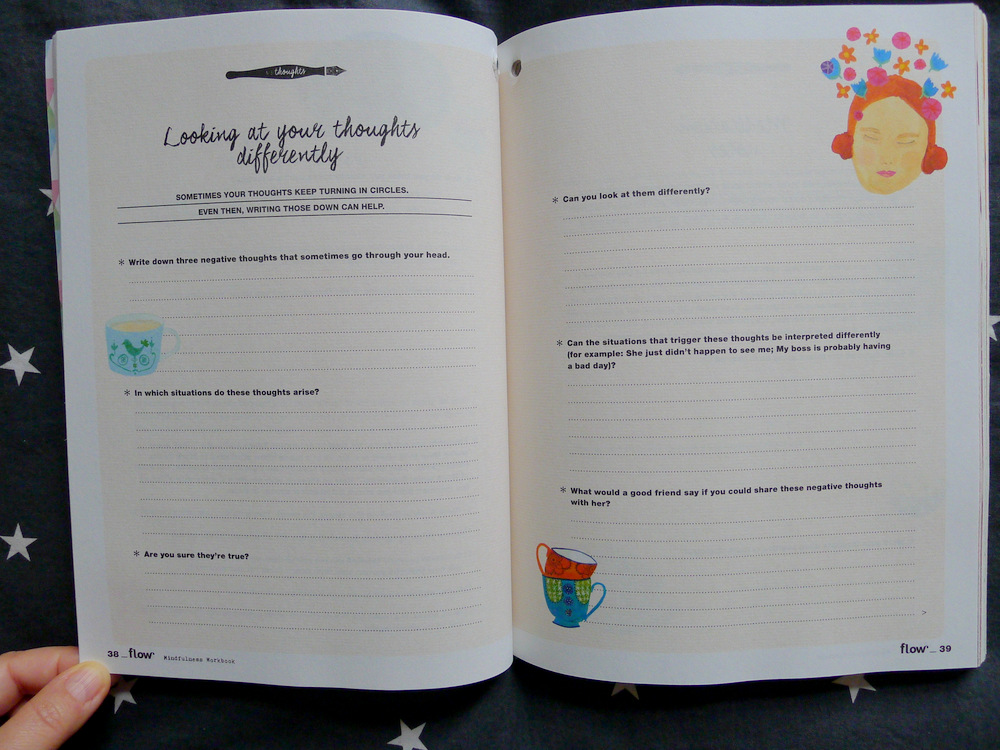 thoughts
Looking at your thoughts
differently
SOMETIMES YOUR THOUGHTS KEEP TURNING IN CIRCLES.
EVEN THEN, WRITING THOSE DOWN CAN HELP.
* Write down three negative thoughts that sometimes go through your head.
* In which situations do these thoughts arise?
* Are you sure they're true?
38 _flow Mindfulness Workbook
* Can you look at them differently?
* Can the situations that trigger these thoughts be interpreted differently
(for example: She just didn't happen to see me; My boss is probably having
a bad day)?
* What would a good friend say if you could share these negative thoughts
with her?
>
flow_ 39